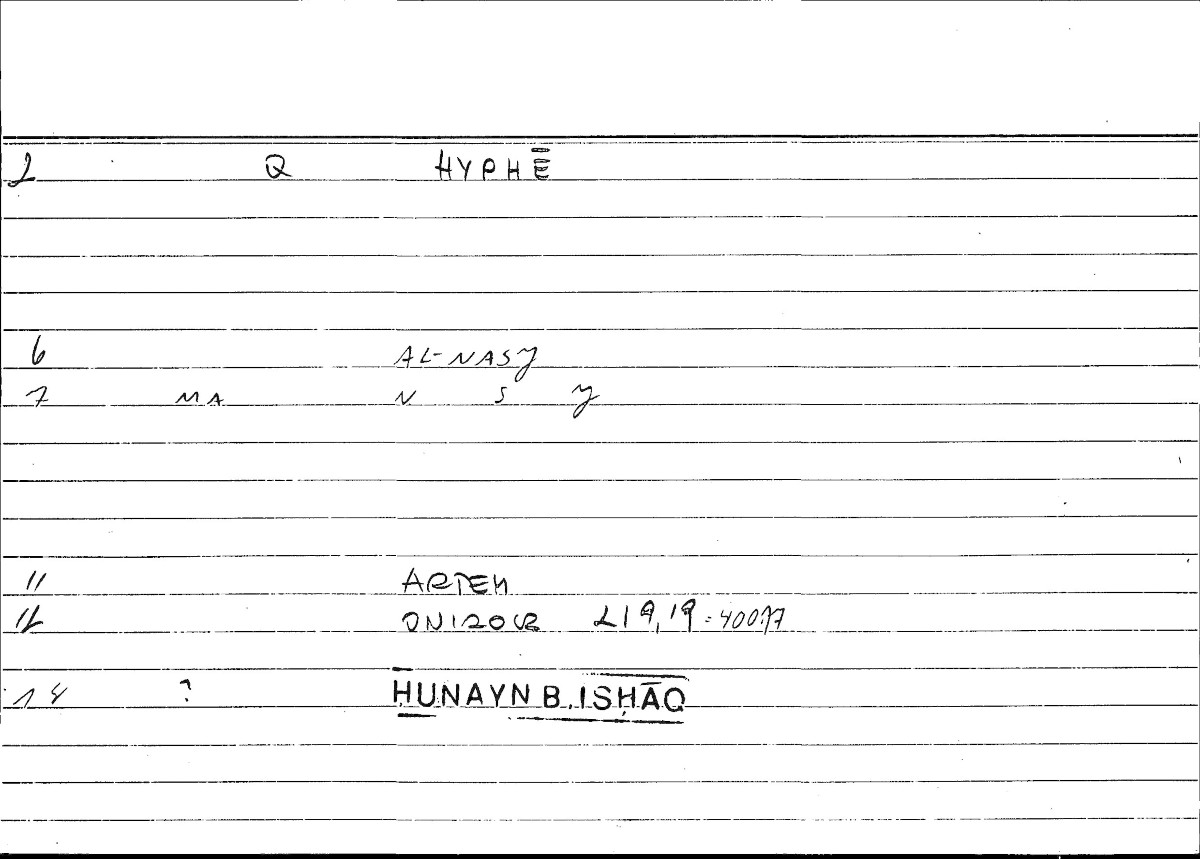 2 Q HYPHĒ
6 AL-NASJ
7 MA N S J
11 ARTEM
12 ONIROCR 219,19:400.17
14 ? ḤUNAYN B. ISḤĀQ